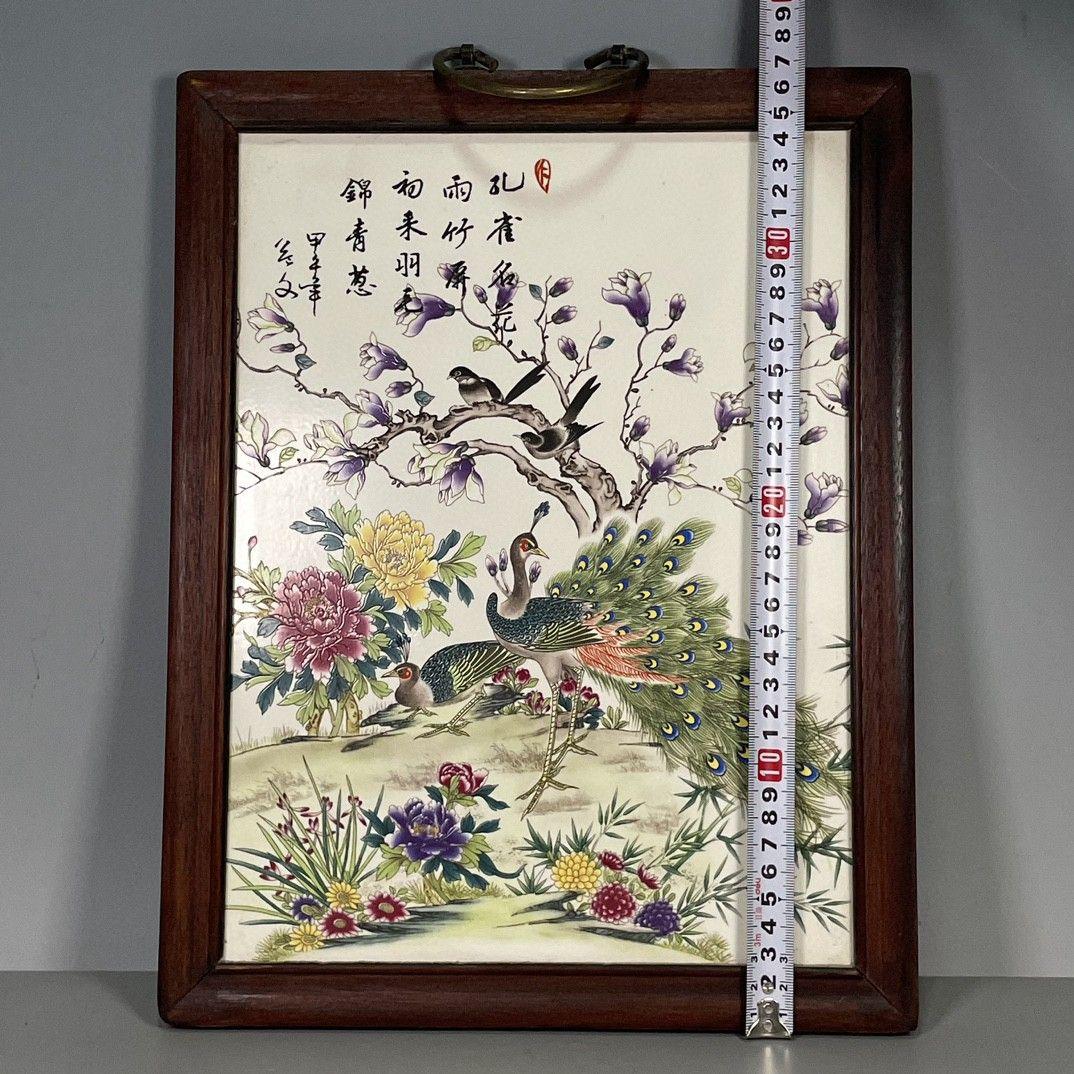 孔雀名花
雨竹屏
初来羽毛
錦青葱
甲午年
9
8
7
6
5
4
3
2
1
30
9
8
7
6
5
4
3
2
1
20
9
8
7
6
5
4
3
2
1
10
9
8
7
6
5
4
3
2
3m